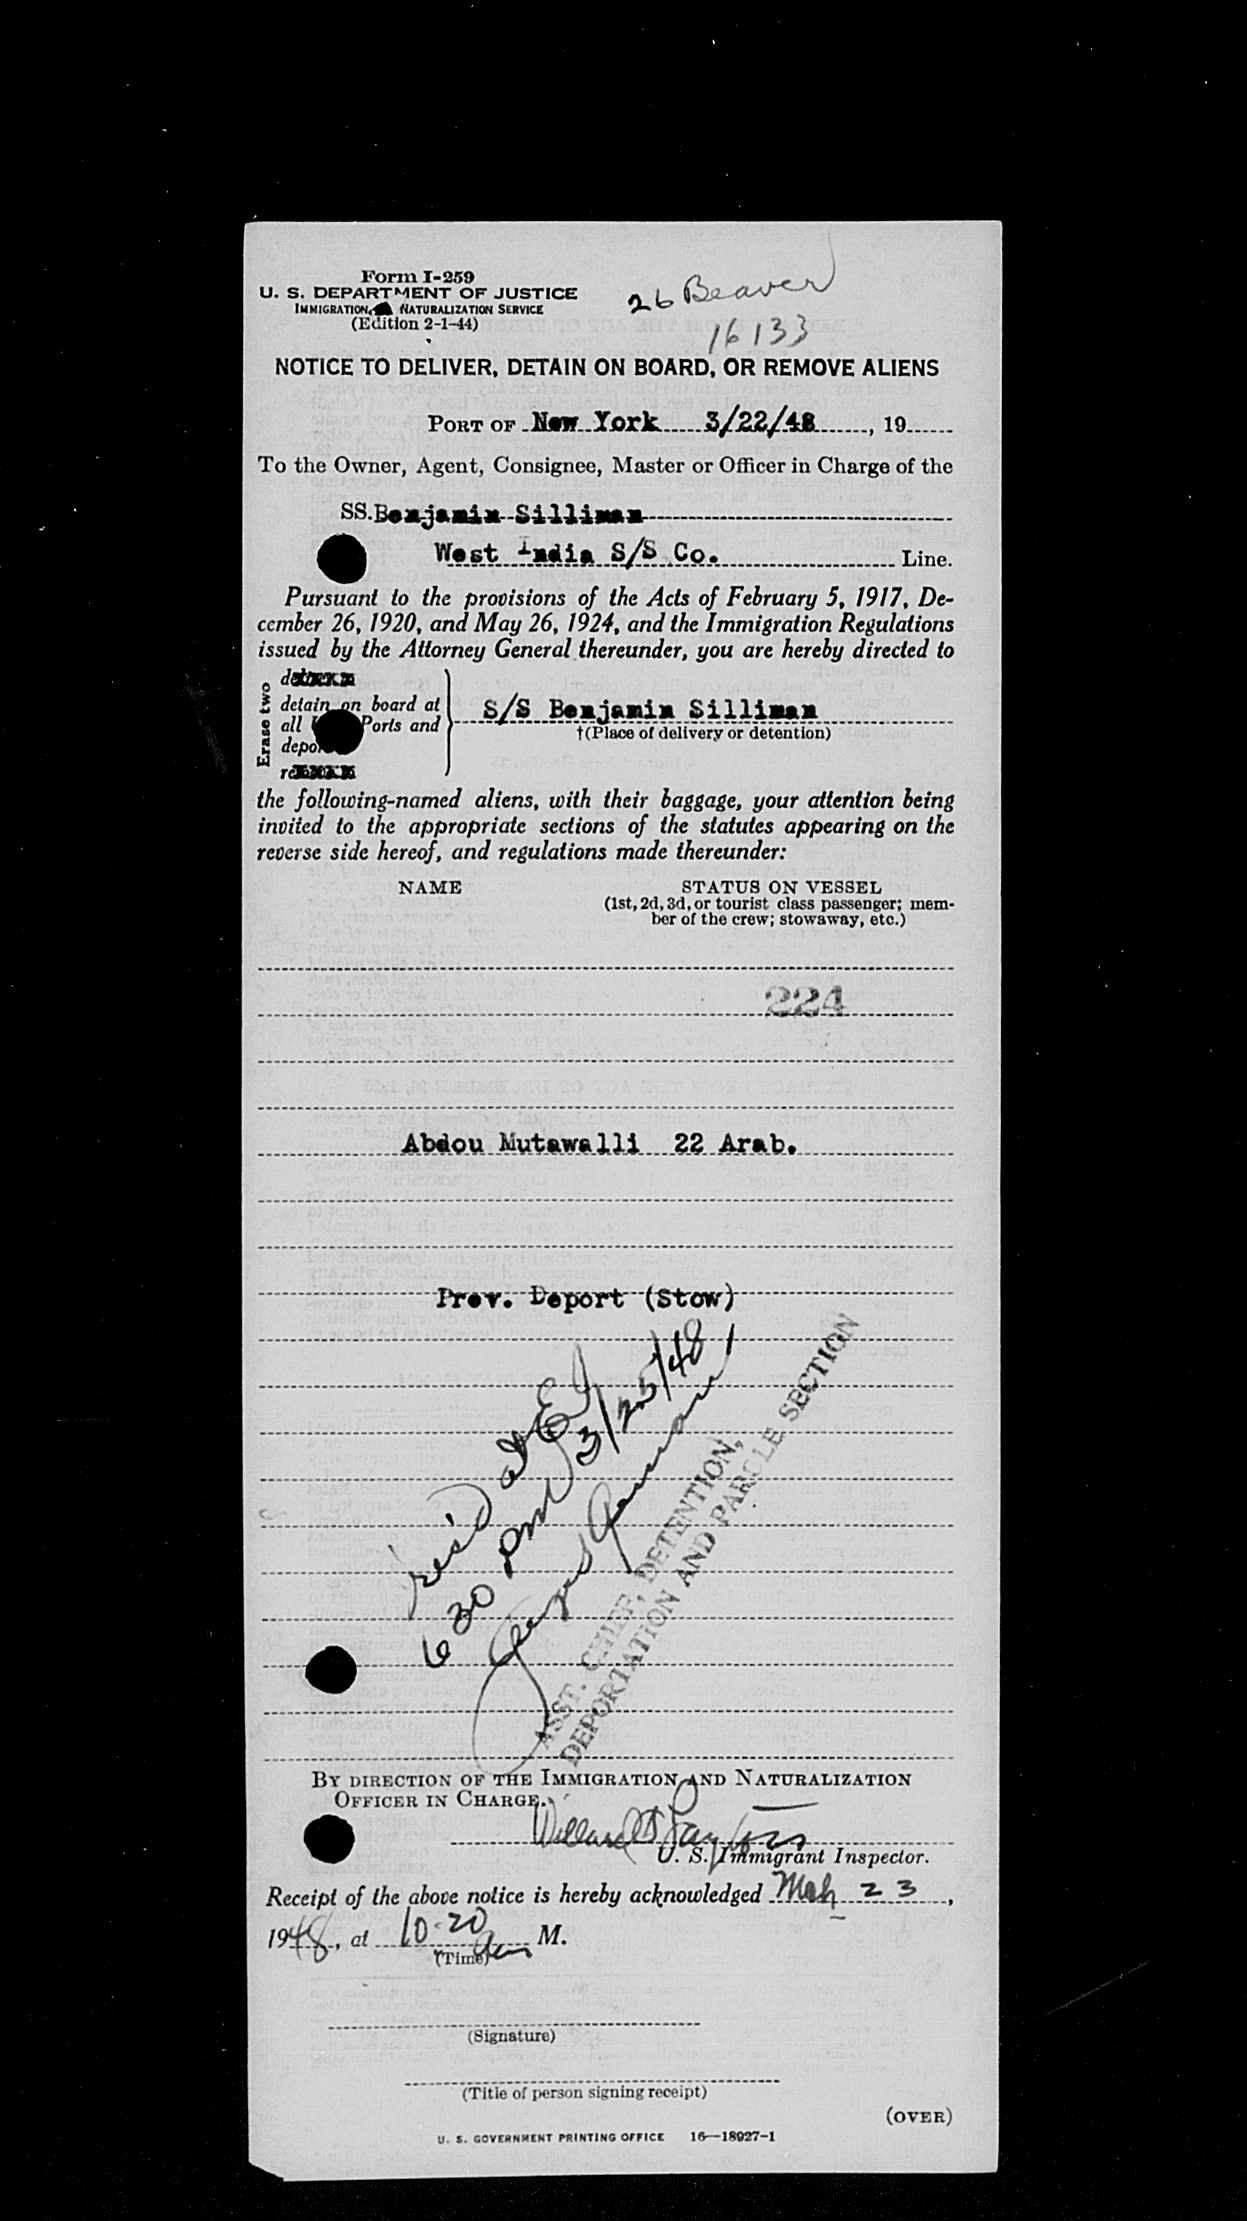 Form I-259
U. S. DEPARTMENT OF JUSTICE
IMMIGRATION NATURALIZATION SERVICE
(Edition 2-1-44)
26 Beaver
16133
NOTICE TO DELIVER, DETAIN ON BOARD, OR REMOVE ALIENS
PORT OF New York 3/22/48, 19
To the Owner, Agent, Consignee, Master or Officer in Charge of the
SS. Benjamin Silliman
West India S/S Co. Line.
Pursuant to the provisions of the Acts of February 5, 1917, De-
cember 26, 1920, and May 26, 1924, and the Immigration Regulations
issued by the Attorney General thereunder, you are hereby directed to
Erase two
detain on board at
all Ports and
S/S Benjamin Silliman
†(Place of delivery or detention)
the following-named aliens, with their baggage, your attention being
invited to the appropriate sections of the statutes appearing on the
reverse side hereof, and regulations made thereunder:
NAME STATUS ON VESSEL
(1st, 2d, 3d, or tourist class passenger; mem-
ber of the crew; stowaway, etc.)
224
Abdou Mutawalli 22 Arab.
Prev. Deport (Stow)
rec'd at EI
630 PM 3/25/48
ASST. CHIEF, DETENTION,
DEPORTATION AND PAROLE SECTION
BY DIRECTION OF THE IMMIGRATION AND NATURALIZATION
OFFICER IN CHARGE.
U. S. Immigrant Inspector.
Receipt of the above notice is hereby acknowledged Mch 23,
1948, at 10:20 am M.
(Time)
(Signature)
(Title of person signing receipt)
(OVER)
U. S. GOVERNMENT PRINTING OFFICE 16—18927-1